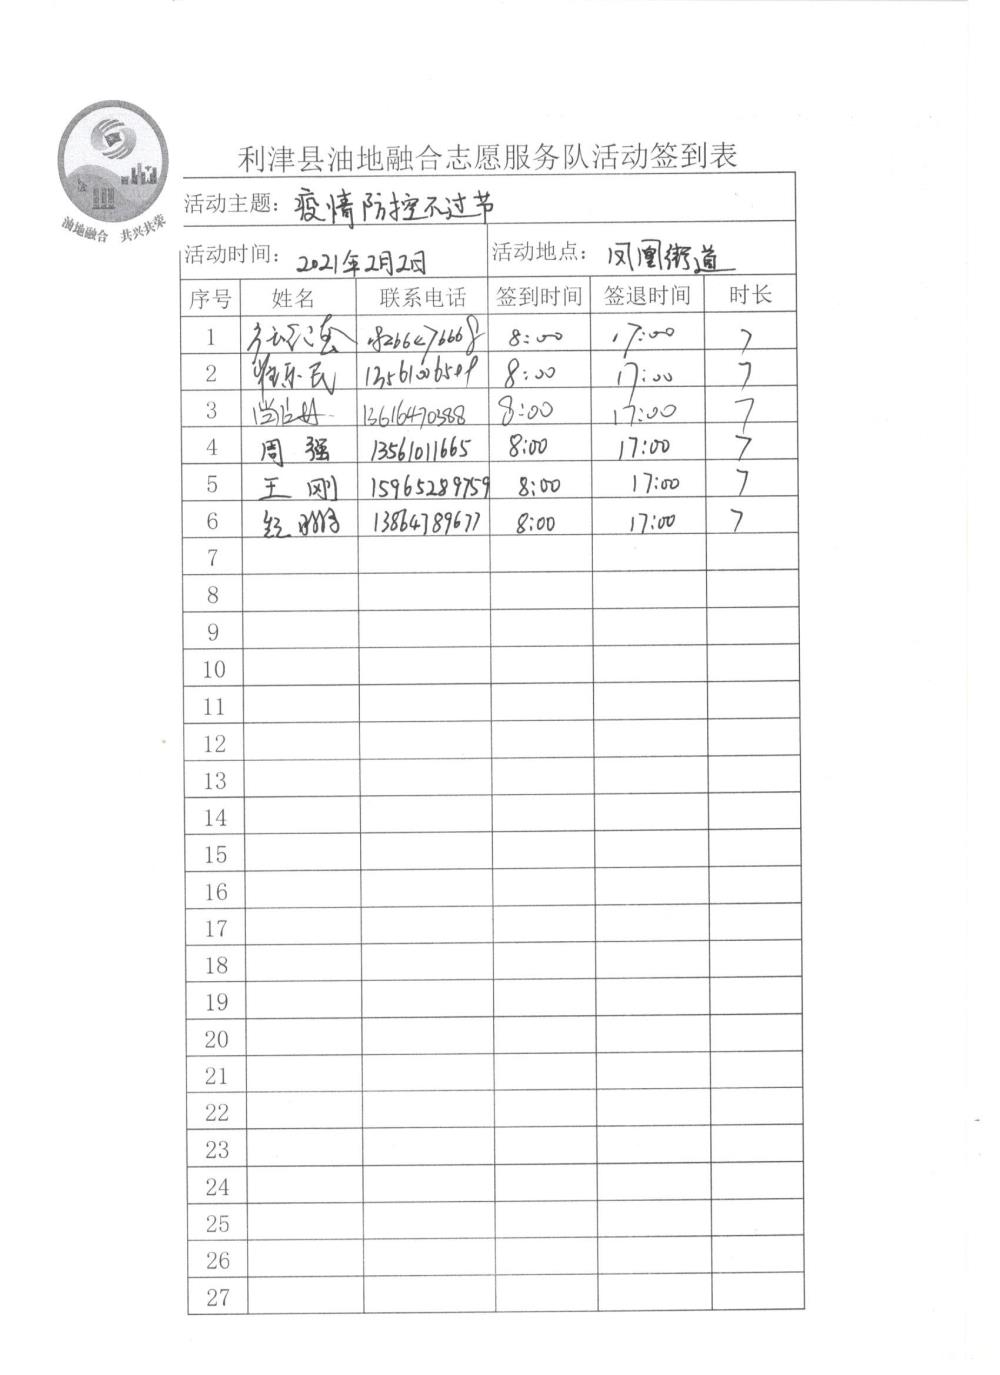 油地融合 共兴共荣
利津县油地融合志愿服务队活动签到表
活动主题：疫情防控不过节
活动时间：2021年2月2日 活动地点：凤凰街道
序号 姓名 联系电话 签到时间 签退时间 时长
1 8:00 17:00 7
2 8:00 17:00 7
3 13616470388 8:00 17:00 7
4 周强 13561011665 8:00 17:00 7
5 王刚 15965289759 8:00 17:00 7
6 13864789677 8:00 17:00 7
7
8
9
10
11
12
13
14
15
16
17
18
19
20
21
22
23
24
25
26
27